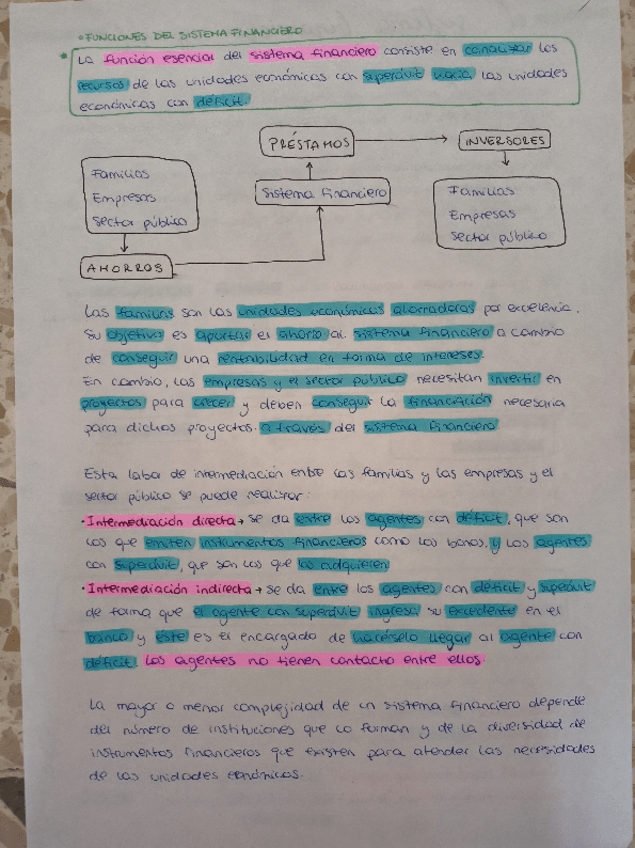 • FUNCIONES DEL SISTEMA FINANCIERO
• La función esencial del sistema financiero consiste en canalizar los
recursos de las unidades económicas con superávit hacia las unidades
económicas con déficit.
PRÉSTAMOS
INVERSORES
Familias
Empresas
Sector público
Sistema financiero
Familias
Empresas
Sector público
AHORROS
Las familias son las unidades económicas ahorradoras por excelencia.
Su objetivo es aportar el ahorro al sistema financiero a cambio
de conseguir una rentabilidad en forma de intereses.
En cambio, las empresas y el sector público necesitan invertir en
proyectos para crecer y deben conseguir la financiación necesaria
para dichos proyectos a través del sistema financiero.
Esta labor de intermediación entre las familias y las empresas y el
sector público se puede realizar:
• Intermediación directa → se da entre los agentes con déficit, que son
los que emiten instrumentos financieros como los bonos, y los agentes
con superávit, que son los que los adquieren.
• Intermediación indirecta → se da entre los agentes con déficit y superávit
de forma que el agente con superávit ingresa su excedente en el
banco y éste es el encargado de hacérselo llegar al agente con
déficit. Los agentes no tienen contacto entre ellos.
La mayor o menor complejidad de un sistema financiero depende
del número de instituciones que lo forman y de la diversidad de
instrumentos financieros que existen para atender las necesidades
de las unidades económicas.